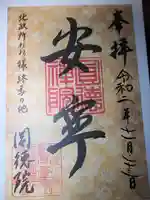 奉拝
令和二年十一月
安寧
北政所ねね様終焉の地
圓徳院